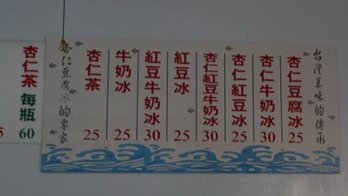 台灣美味的傳承
杏仁豆腐冰 25
杏仁牛奶冰 30
杏仁冰 25
杏仁紅豆牛奶冰 30
紅豆冰 25
紅豆牛奶冰 30
牛奶冰 25
杏仁茶 25
杏仁豆腐冰的專家
杏仁茶 每瓶 60
5